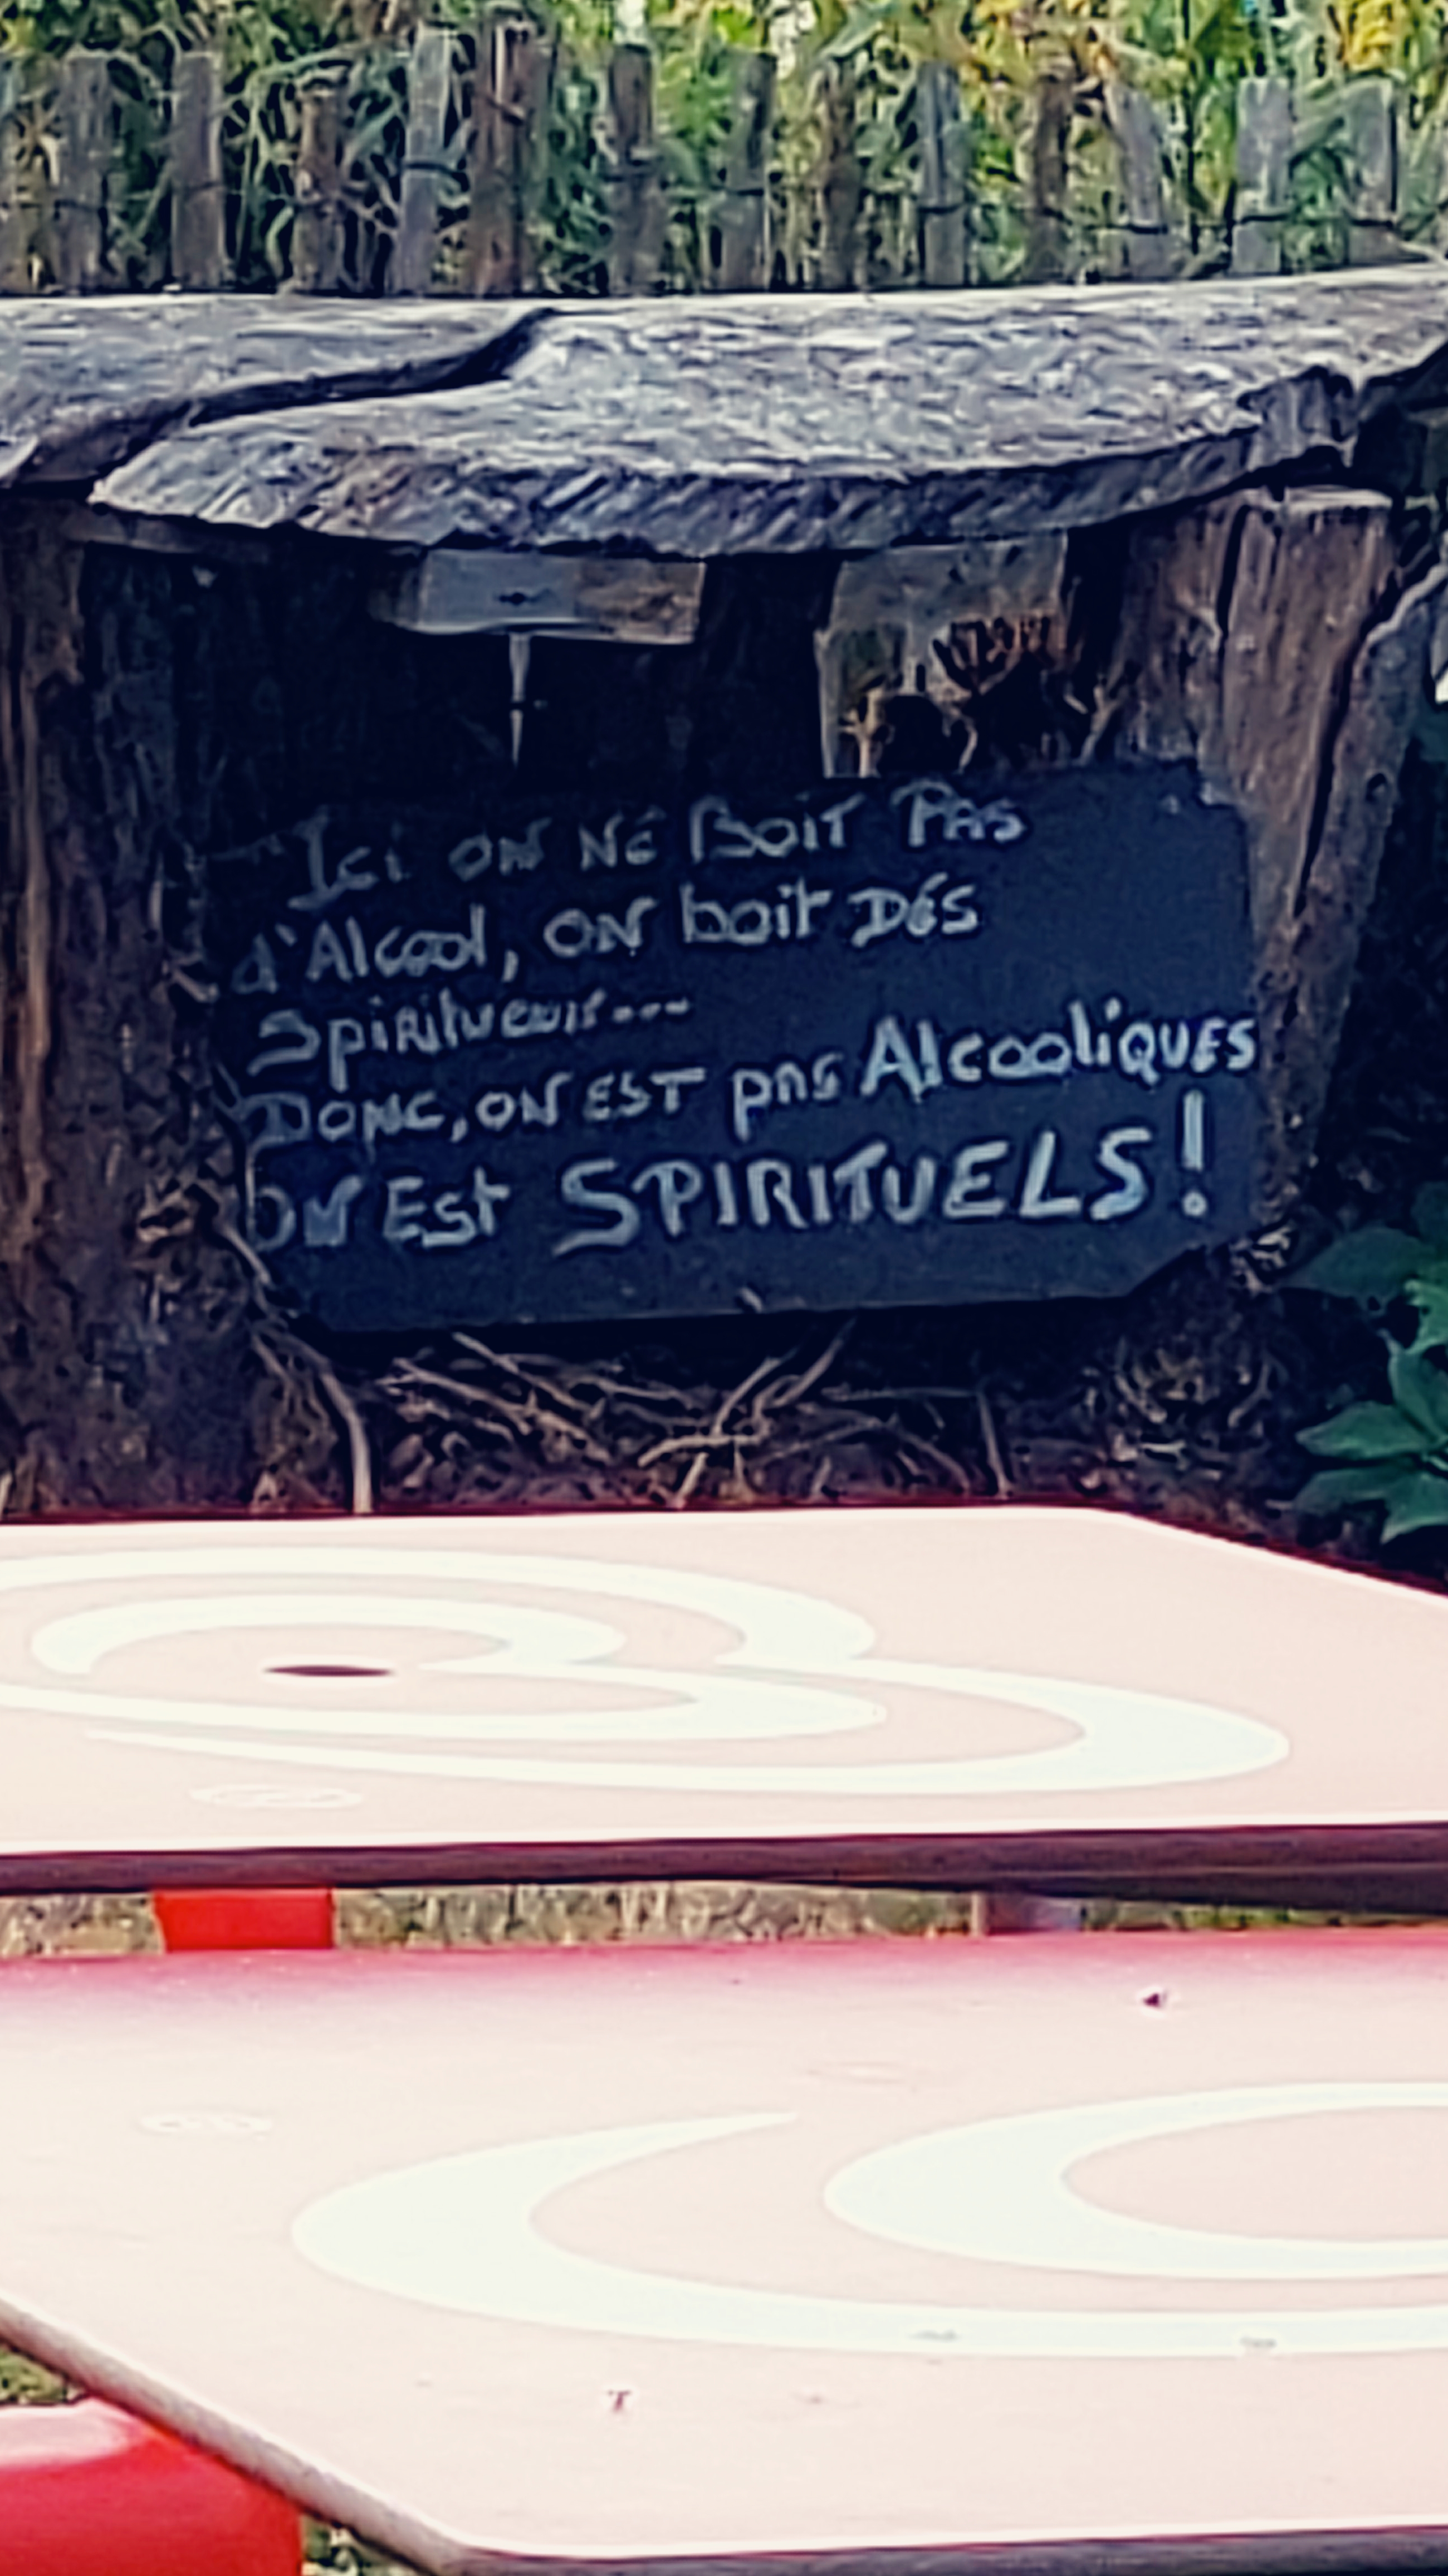 Ici ON NE BOIT PAS
d'Alcool, ON boit DES
Spiritueux...
DONC, ON EST pas AlcooliQUES
ON Est SPIRITUELS!